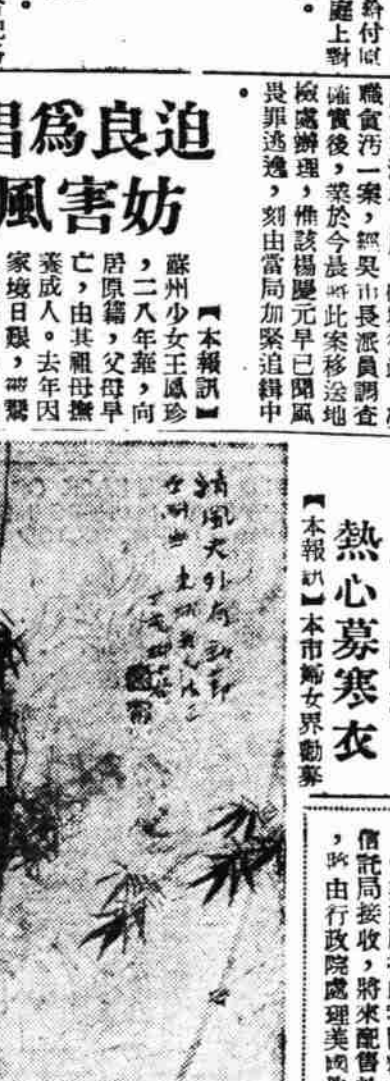 給付原
庭上對
。
職貪污一案，經吳市長派員調查
確實後，業於今晨將此案移送地
檢處辦理，惟該楊慶元早已聞風
畏罪逃逸，刻由當局加緊追緝中
。
迫良爲
妨害風
【本報訊】
蘇州少女王鳳珍
，二八年華，向
居原籍，父母早
亡，由其祖母撫
養成人。去年因
家境日艱，被鬻
熱心募寒衣
【本報訊】本市婦女界勸募
信託局接收，將來配售
，昨由行政院處理美國